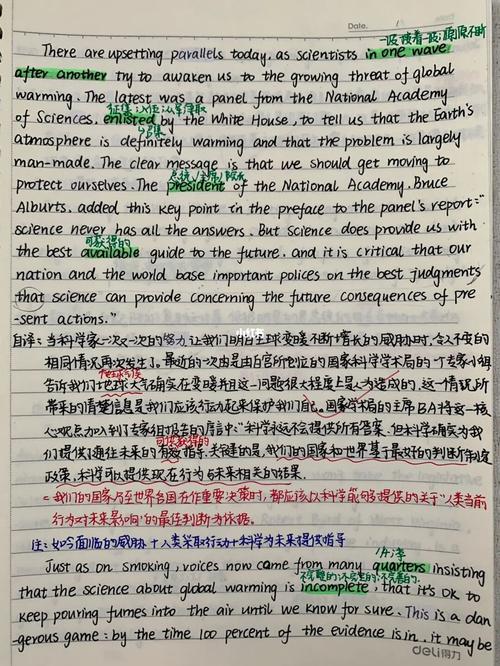 Date.
一波接着一波;源源不断
There are upsetting parallels today, as scientists in one wave
after another try to awaken us to the growing threat of global
warming. The latest was a panel from the National Academy
征集;入伍;从军;争取
of Sciences, enlisted by the White House, to tell us that the Earth's
atmosphere is definitely warming and that the problem is largely
man-made. The clear message is that we should get moving to
总统/主席/院长
protect ourselves. The president of the National Academy, Bruce
Alburts, added this key point in the preface to the panel's report:"
science never has all the answers. But science does provide us with
可获得的
the best available guide to the future, and it is critical that our
nation and the world base important polices on the best judgments
that science can provide concerning the future consequences of pre
-sent actions."
自译:当科学家一次又一次的努力让我们明白全球变暖不断增长的威胁时,令人不安的
相同情况再次发生了。最近的一次由是由白宫所地位的国家科学学术局的一个专家小组
告诉我们:地球大气确实在变暖并且这一问题很大程度上是人为造成的,这一情况所
带来的清楚信息是我们应该行动起来保护我们自己。国家学术局的主席BA将这一核
心观点加入到了专家组报告的序言中:"科学永远不会提供所有答案,但科学确实为我
可供获得的
们提供了通往未来的有效指导,关键的是,我们的国家和世界基于最好的判断所制定
政策,科学可以提供现在行为与未来相关的结果.
=我们的国家乃至世界各国在作重要决策时,都应该以科学能够提供的关于"人类当前
行为对未来影响"的最佳判断为依据。
注:如今面临的威胁+人类采取行动+科学为未来提供指导
Just as on smoking, voices now came from many quarters insisting
不完整的;不完全的;不完善的.
that the science about global warming is incomplete, that it's OK to
keep pouring fumes into the air until we know for sure. This is a dan
-gerous game: by the time 100 percent of the evidence is in, it may be
deli得力
小红书